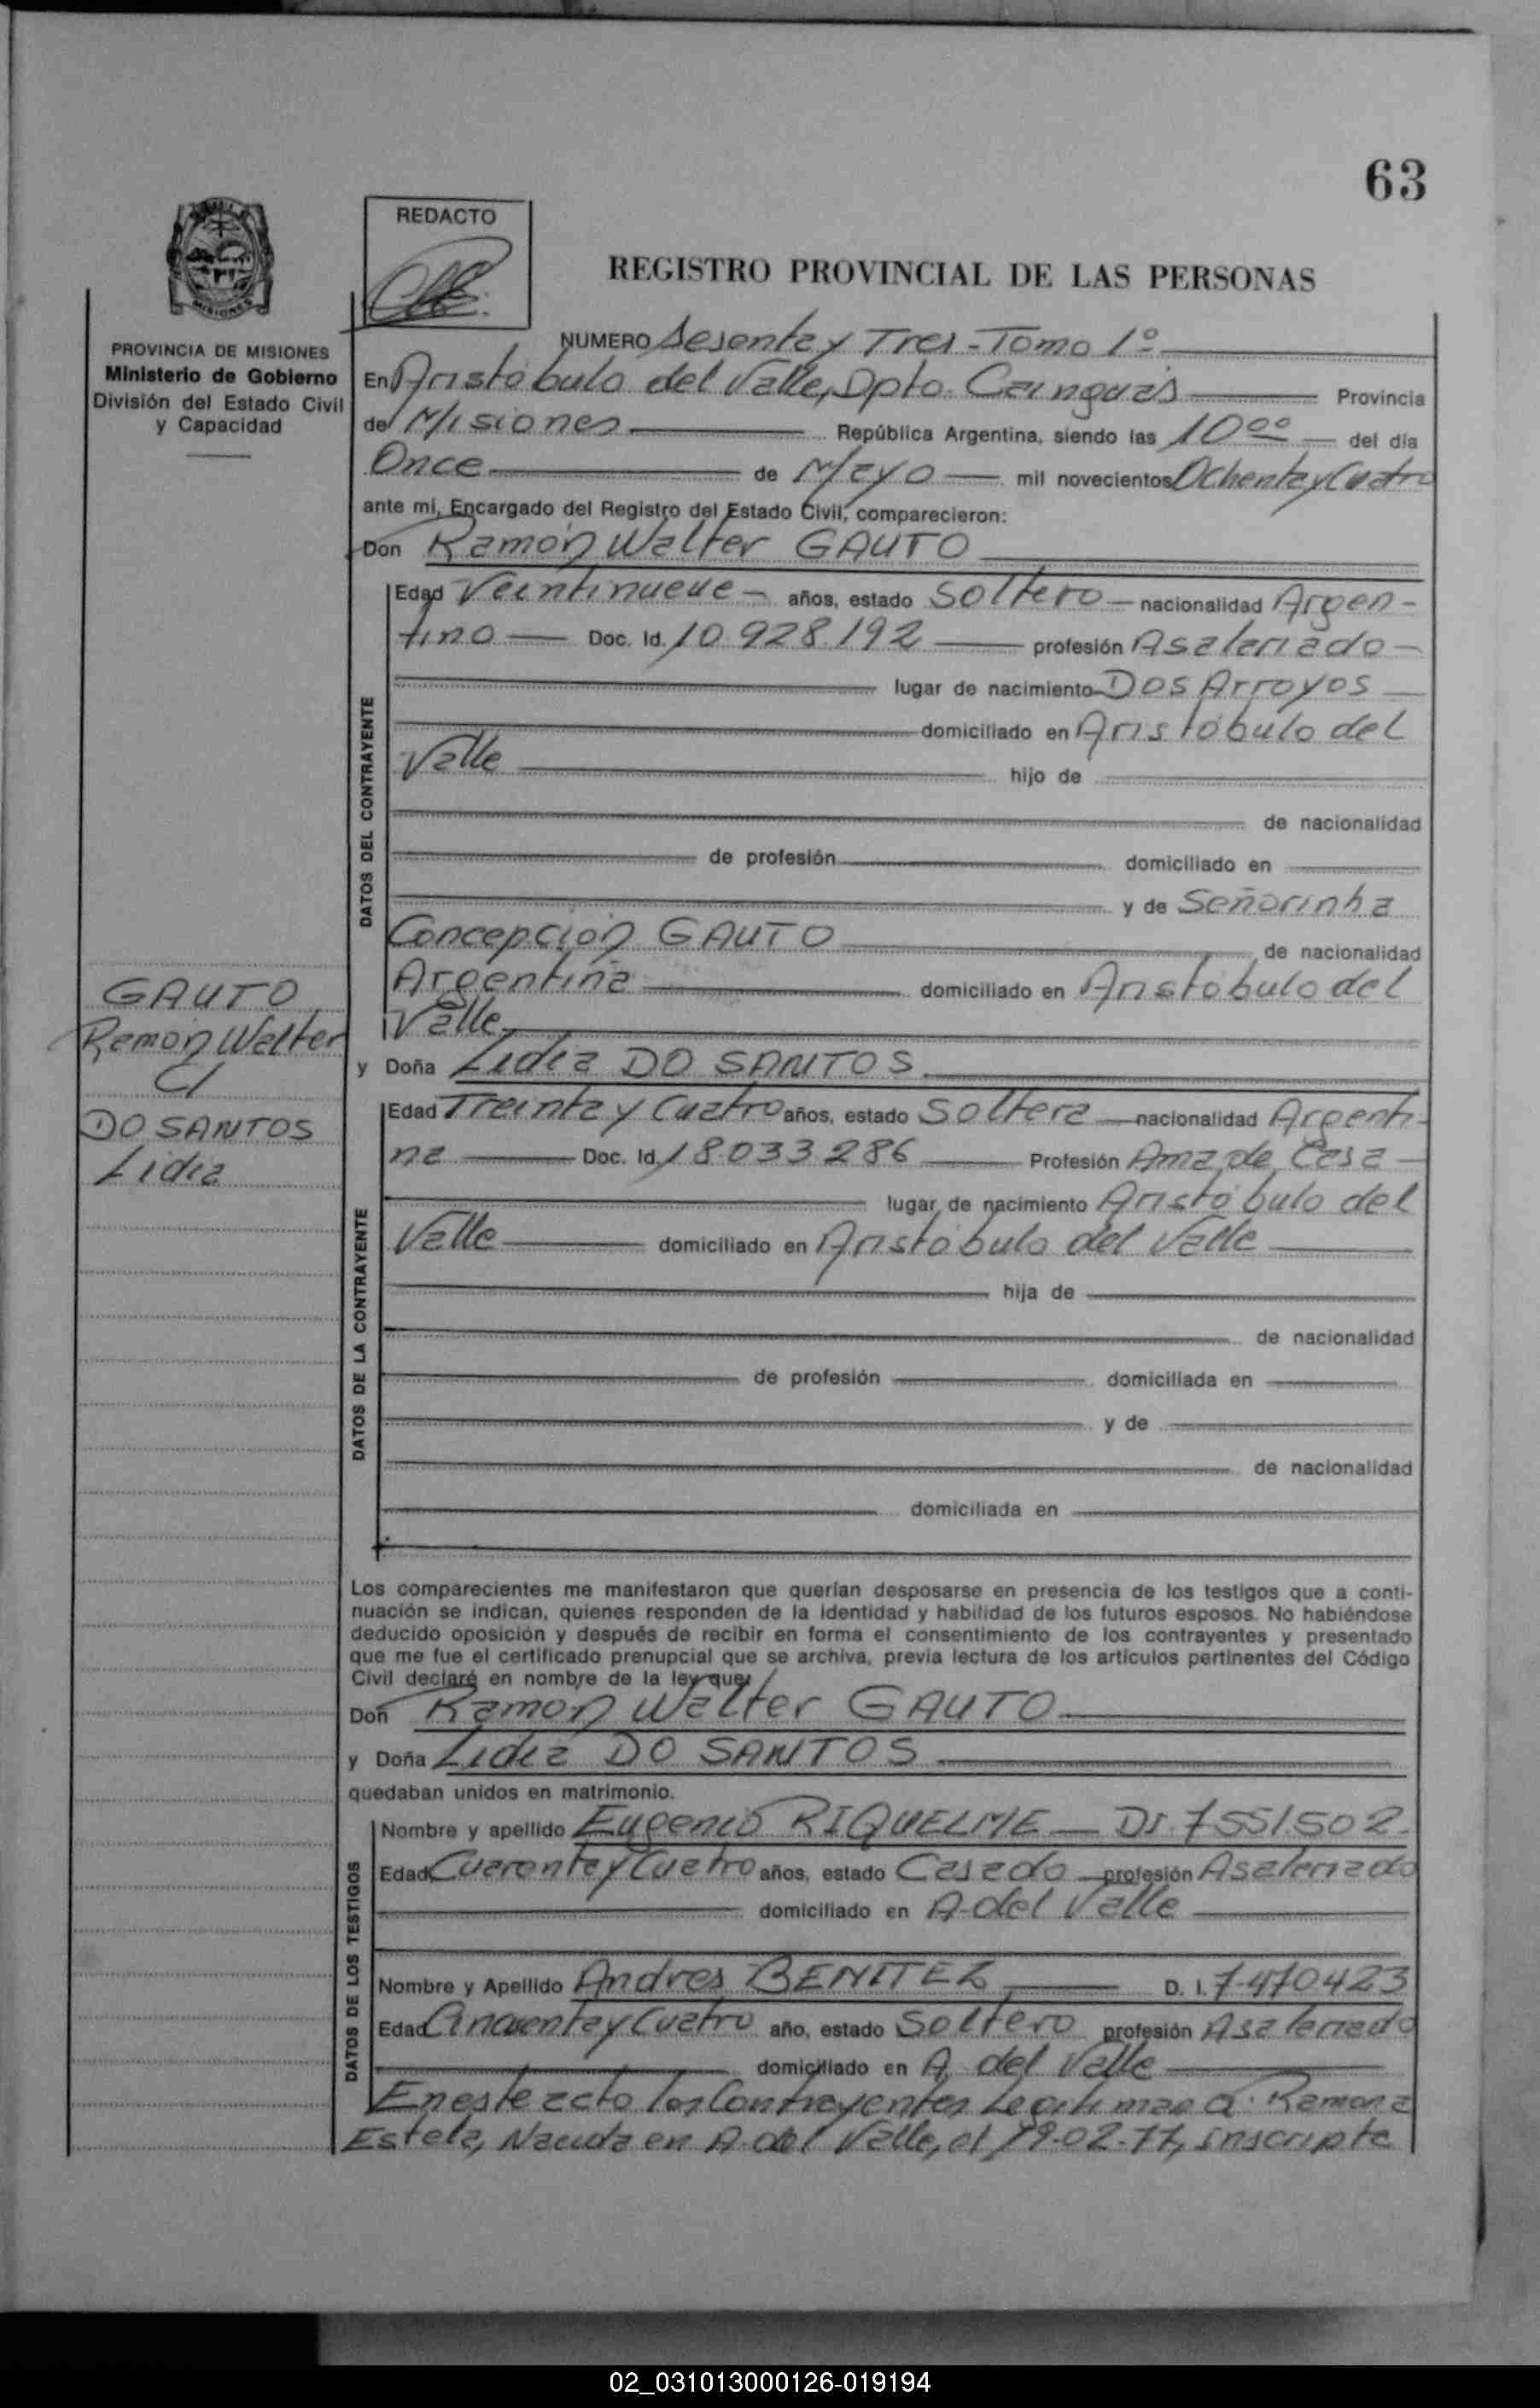 63
REDACTO
REGISTRO PROVINCIAL DE LAS PERSONAS
MISIONES
PROVINCIA DE MISIONES
Ministerio de Gobierno
División del Estado Civil
y Capacidad
NUMERO Sesenta y Tres - Tomo 1º
En Aristóbulo del Valle, Dpto. Cainguás Provincia
de Misiones República Argentina, siendo las 10 00 del día
Once de Mayo mil novecientos Ochenta y Cuatro
ante mí, Encargado del Registro del Estado Civil, comparecieron:
Don Ramón Walter GAUTO
DATOS DEL CONTRAYENTE
Edad Veintinueve - años, estado Soltero - nacionalidad Argen-
tino Doc. Id. 10.928.192 profesión Asalariado
lugar de nacimiento Dos Arroyos
domiciliado en Aristóbulo del
Valle hijo de
de nacionalidad
de profesión domiciliado en
y de Señorinha
Concepción GAUTO de nacionalidad
Argentina domiciliado en Aristóbulo del
Valle
GAUTO
Ramón Walter
C/
DO SANTOS
Lidia
y Doña Lidia DO SANTOS
DATOS DE LA CONTRAYENTE
Edad Treinta y Cuatro años, estado Soltera nacionalidad Argenti-
na Doc. Id. 18.033.286 Profesión Ama de Casa
lugar de nacimiento Aristóbulo del
Valle domiciliado en Aristóbulo del Valle
hija de
de nacionalidad
de profesión domiciliada en
y de
de nacionalidad
domiciliada en
Los comparecientes me manifestaron que querían desposarse en presencia de los testigos que a conti-
nuación se indican, quienes responden de la identidad y habilidad de los futuros esposos. No habiéndose
deducido oposición y después de recibir en forma el consentimiento de los contrayentes y presentado
que me fue el certificado prenupcial que se archiva, previa lectura de los artículos pertinentes del Código
Civil declaré en nombre de la ley que:
Don Ramón Walter GAUTO
y Doña Lidia DO SANTOS
quedaban unidos en matrimonio.
DATOS DE LOS TESTIGOS
Nombre y apellido Eugenio RIQUELME - DI. 7551.502
Edad Cuarenta y Cuatro años, estado Casado profesión Asalariado
domiciliado en A. del Valle
Nombre y Apellido Andres BENITEZ D. I. 7.470423
Edad Cincuenta y Cuatro año, estado Soltero profesión Asalariado
domiciliado en A. del Valle
En este acto los Contrayentes Legitiman a: Ramona
Estela, Nacida en A. del Valle, el 19-02-77, inscripta
02_031013000126-019194